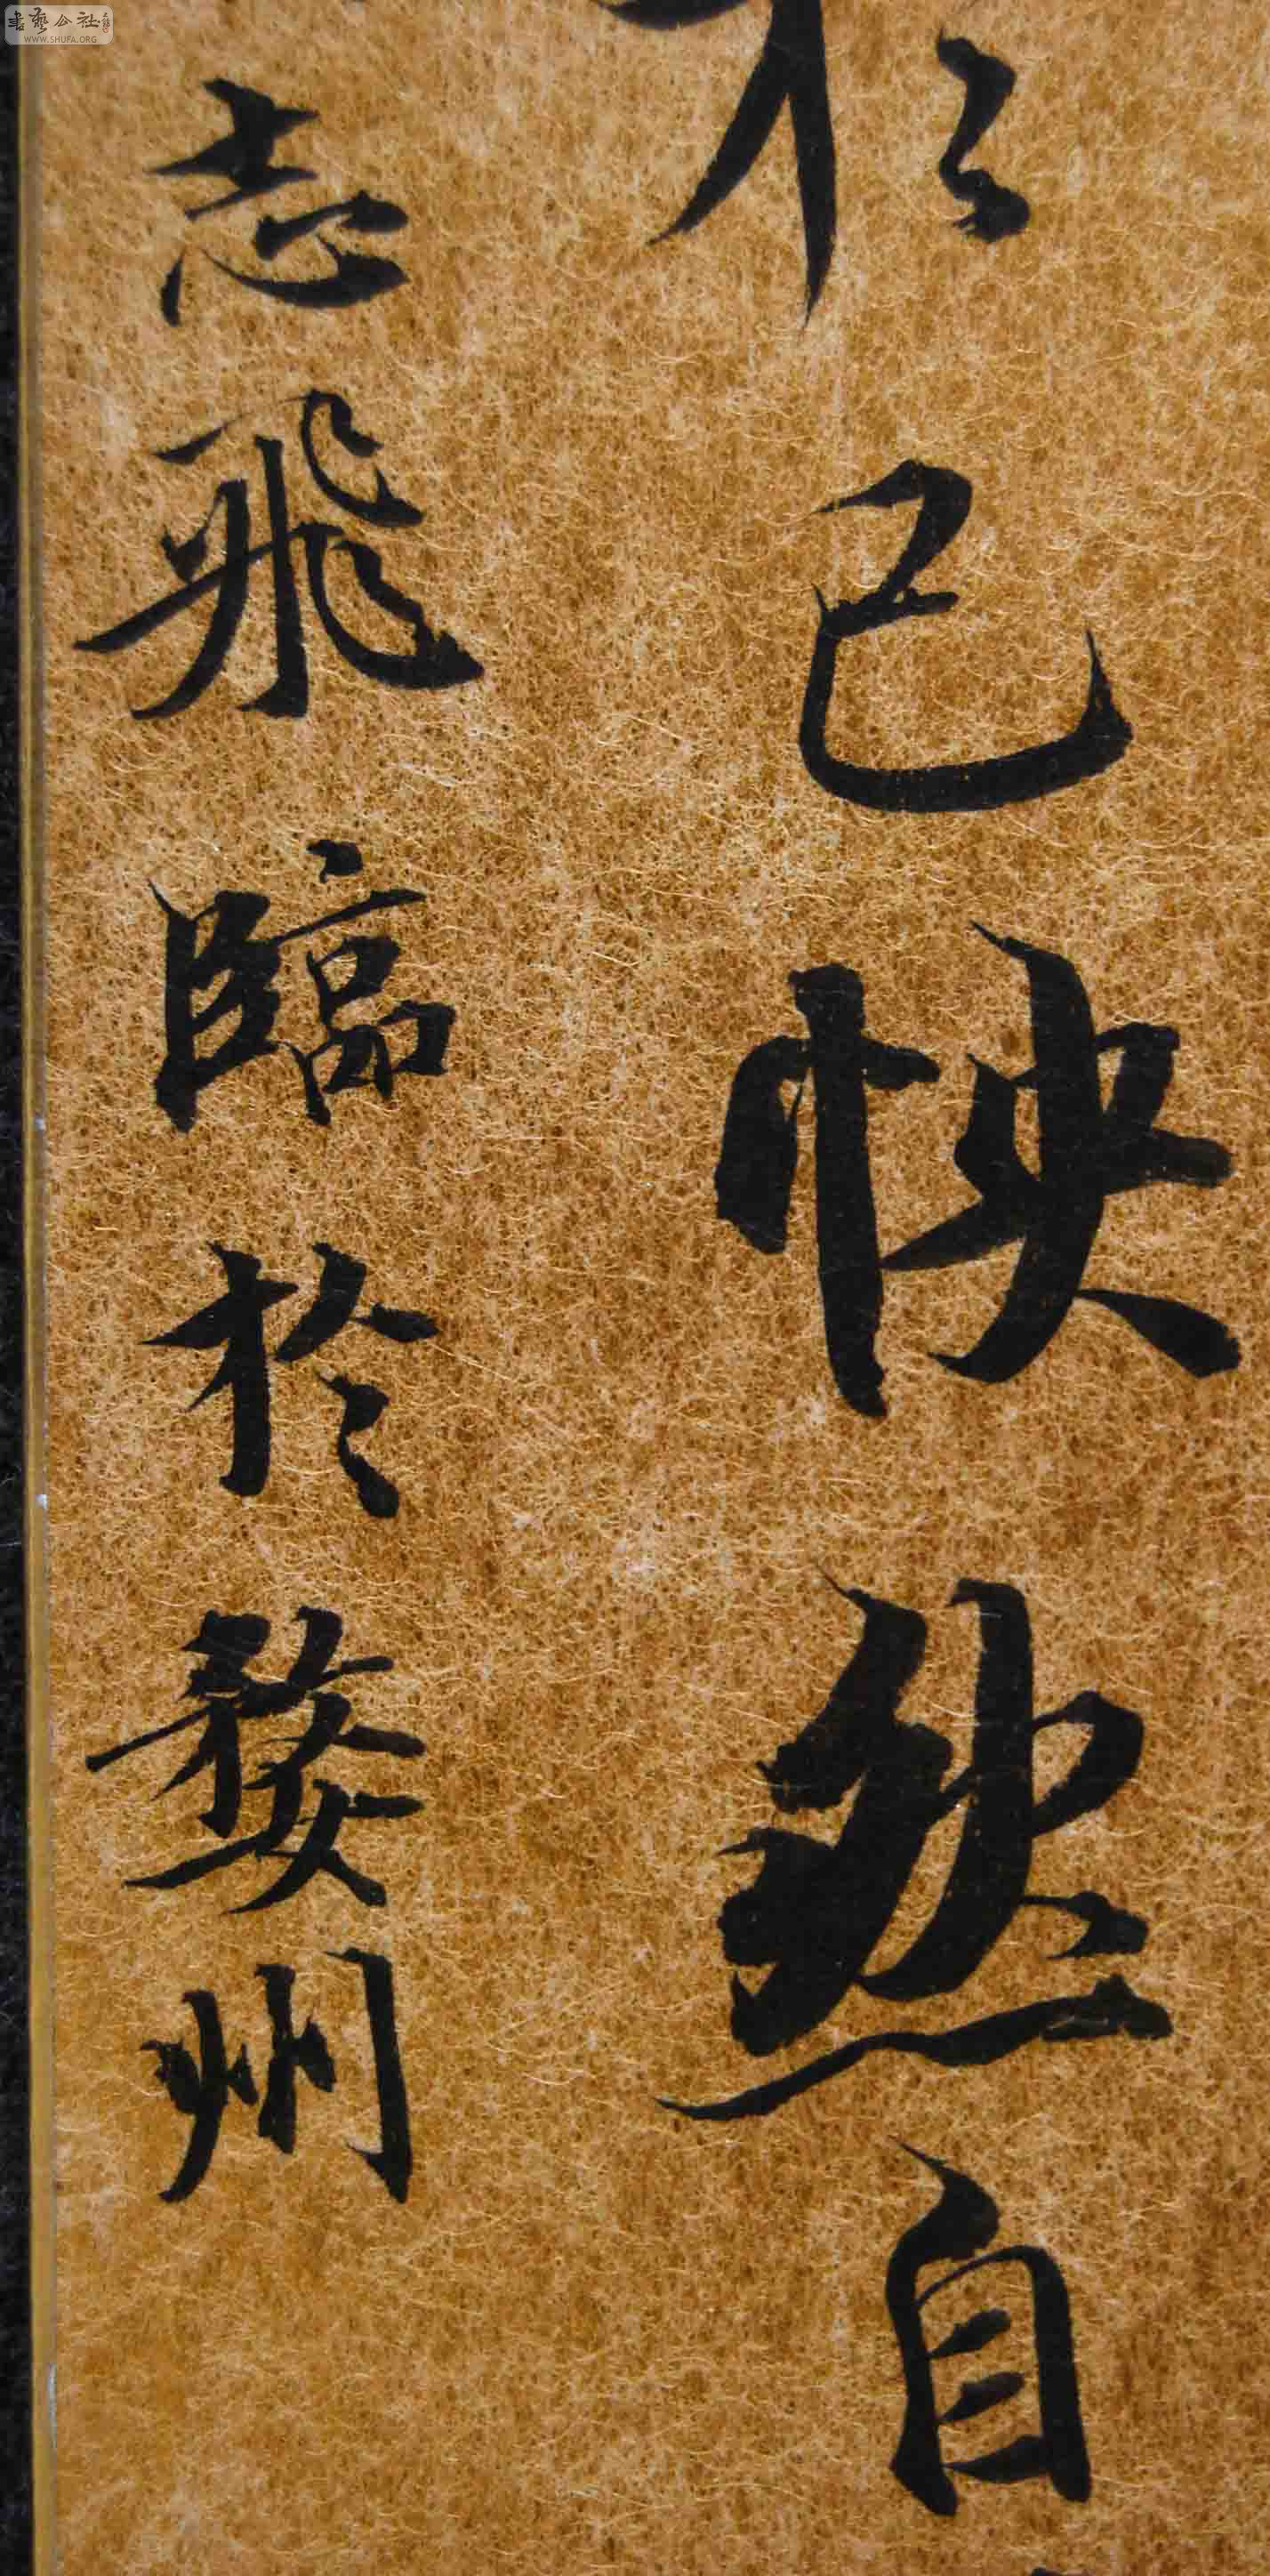 於己快然自
志飛臨於婺州
書藝公社
WWW.SHUFA.ORG